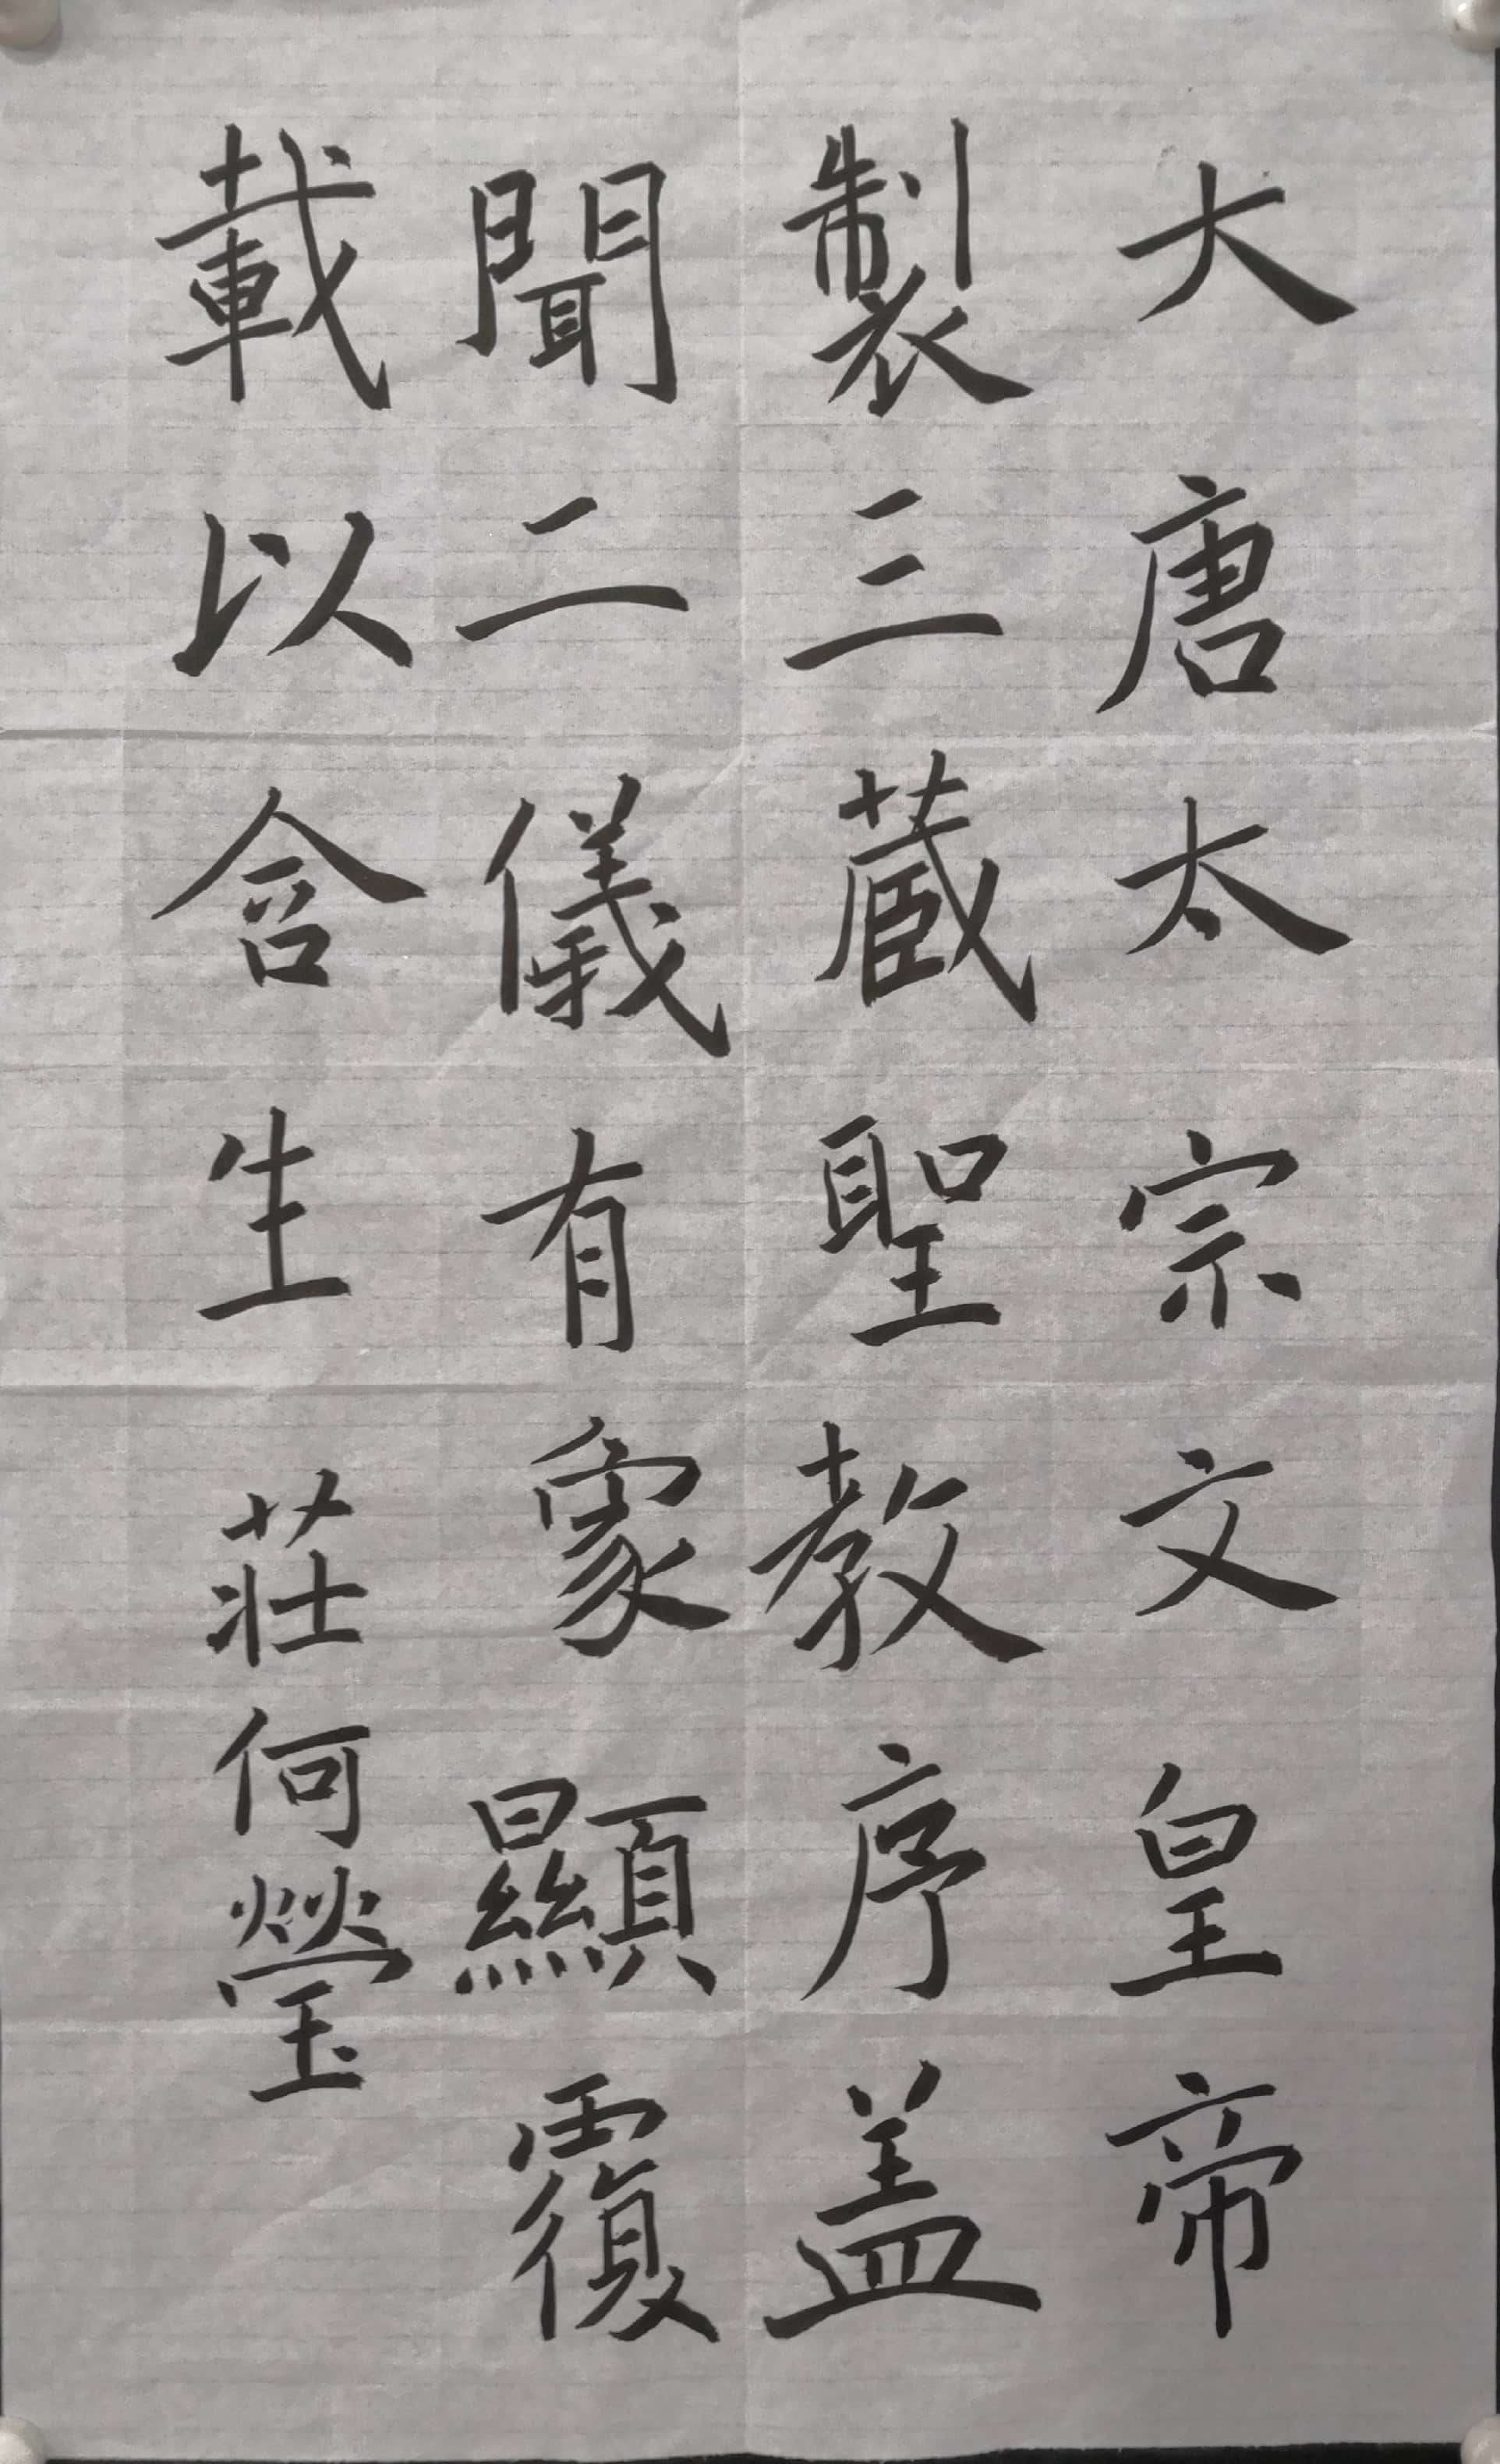 大唐太宗文皇帝
製三藏聖教序盖
聞二儀有象顯覆
載以含生 莊何瑩